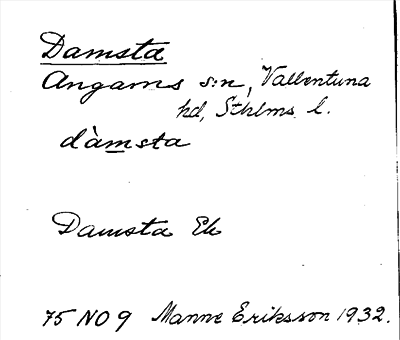 Damsta
Angarns s:n, Vallentuna
hd, Sthlms l.
dàmsta
Damsta Ek
75 NO 9 Manne Eriksson 1932.